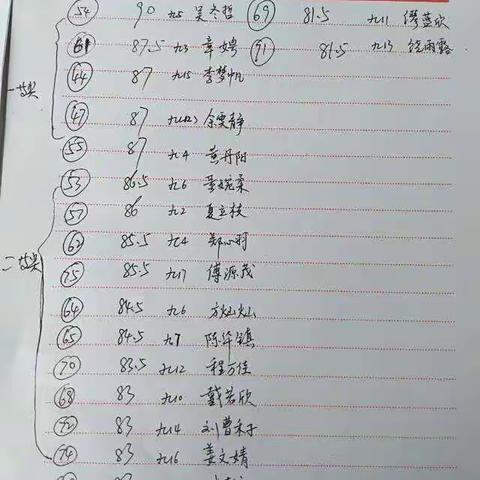 一等奖
54 90 九5 吴冬哲 69 81.5 九11 缪蓝欣
61 87.5 九3 章娉 91 81.5 九13 徐雨露
44 87 九15 李梦帆
47 87 九(12) 余雯静
55 87 九4 黄丹阳
二等奖
53 86.5 九6 黄婉柔
57 86 九2 夏立枝
62 85.5 九4 郑心羽
75 85.5 九17 傅源茂
64 84.5 九6 方灿灿
65 84.5 九7 陈华镇
70 83.5 九12 程方佳
68 83 九10 戴若欣
72 83 九14 刘曹禾子
74 83 九16 姜文婧